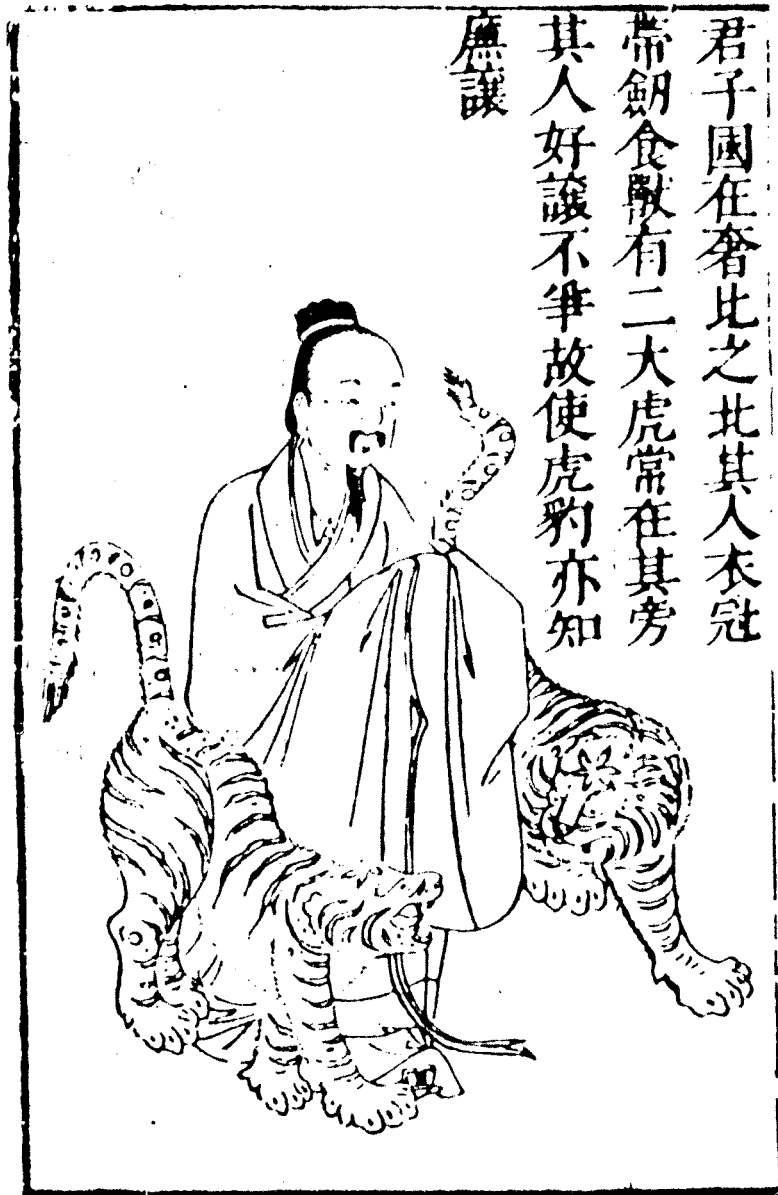 君子國在奢比之北其人衣冠
帶劒食獸有二大虎常在其旁
其人好讓不爭故使虎豹亦知
廉讓